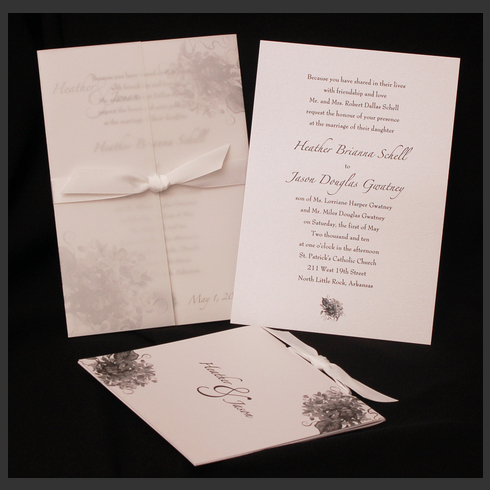 Heather
& Jason
May 1, 20
Because you have shared in their lives
with friendship and love
Mr. and Mrs. Robert Dallas Schell
request the honour of your presence
at the marriage of their daughter
Heather Brianna Schell
to
Jason Douglas Gwatney
son of Ms. Lorriane Harper Gwatney
and Mr. Miles Douglas Gwatney
on Saturday, the first of May
Two thousand and ten
at one o'clock in the afternoon
St. Patrick's Catholic Church
211 West 19th Street
North Little Rock, Arkansas
Heather
&
Jason